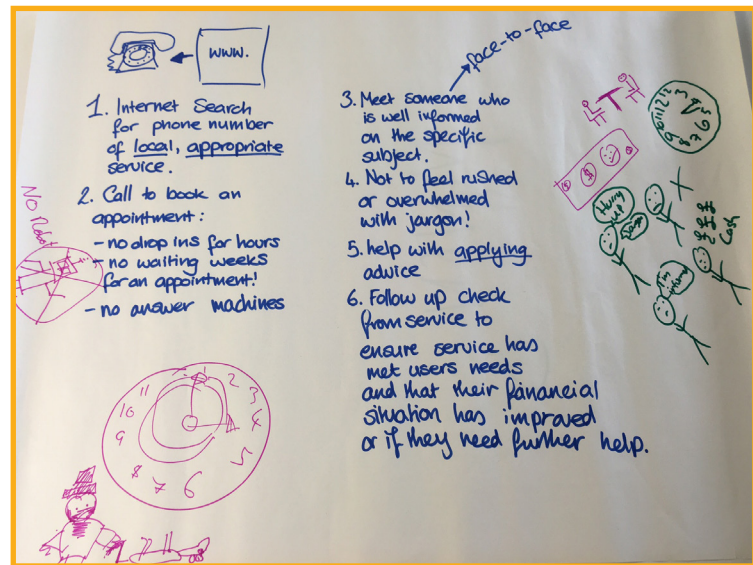 www.
1. Internet Search
for phone number
of local, appropriate
service.
2. Call to book an
appointment:
- no drop ins for hours
- no waiting weeks
for an appointment!
- no answer machines
No Robot
11 12 1 2 3 4 5 6 7 8 9 10
face-to-face
3. Meet someone who
is well informed
on the specific
subject.
4. Not to feel rushed
or overwhelmed
with jargon!
5. help with applying
advice
6. Follow up check
from service to
ensure service has
met users needs
and that their finanacial
situation has improved
or if they need further help.
$
Hurry
up
£££
Cash